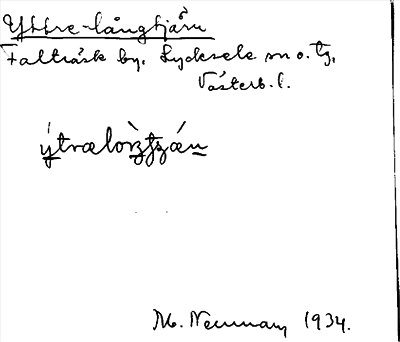 Yttre-långtjärn
Falträsk by. Lycksele m o. tg.
Västerb. l.
M. Neuman 1934.